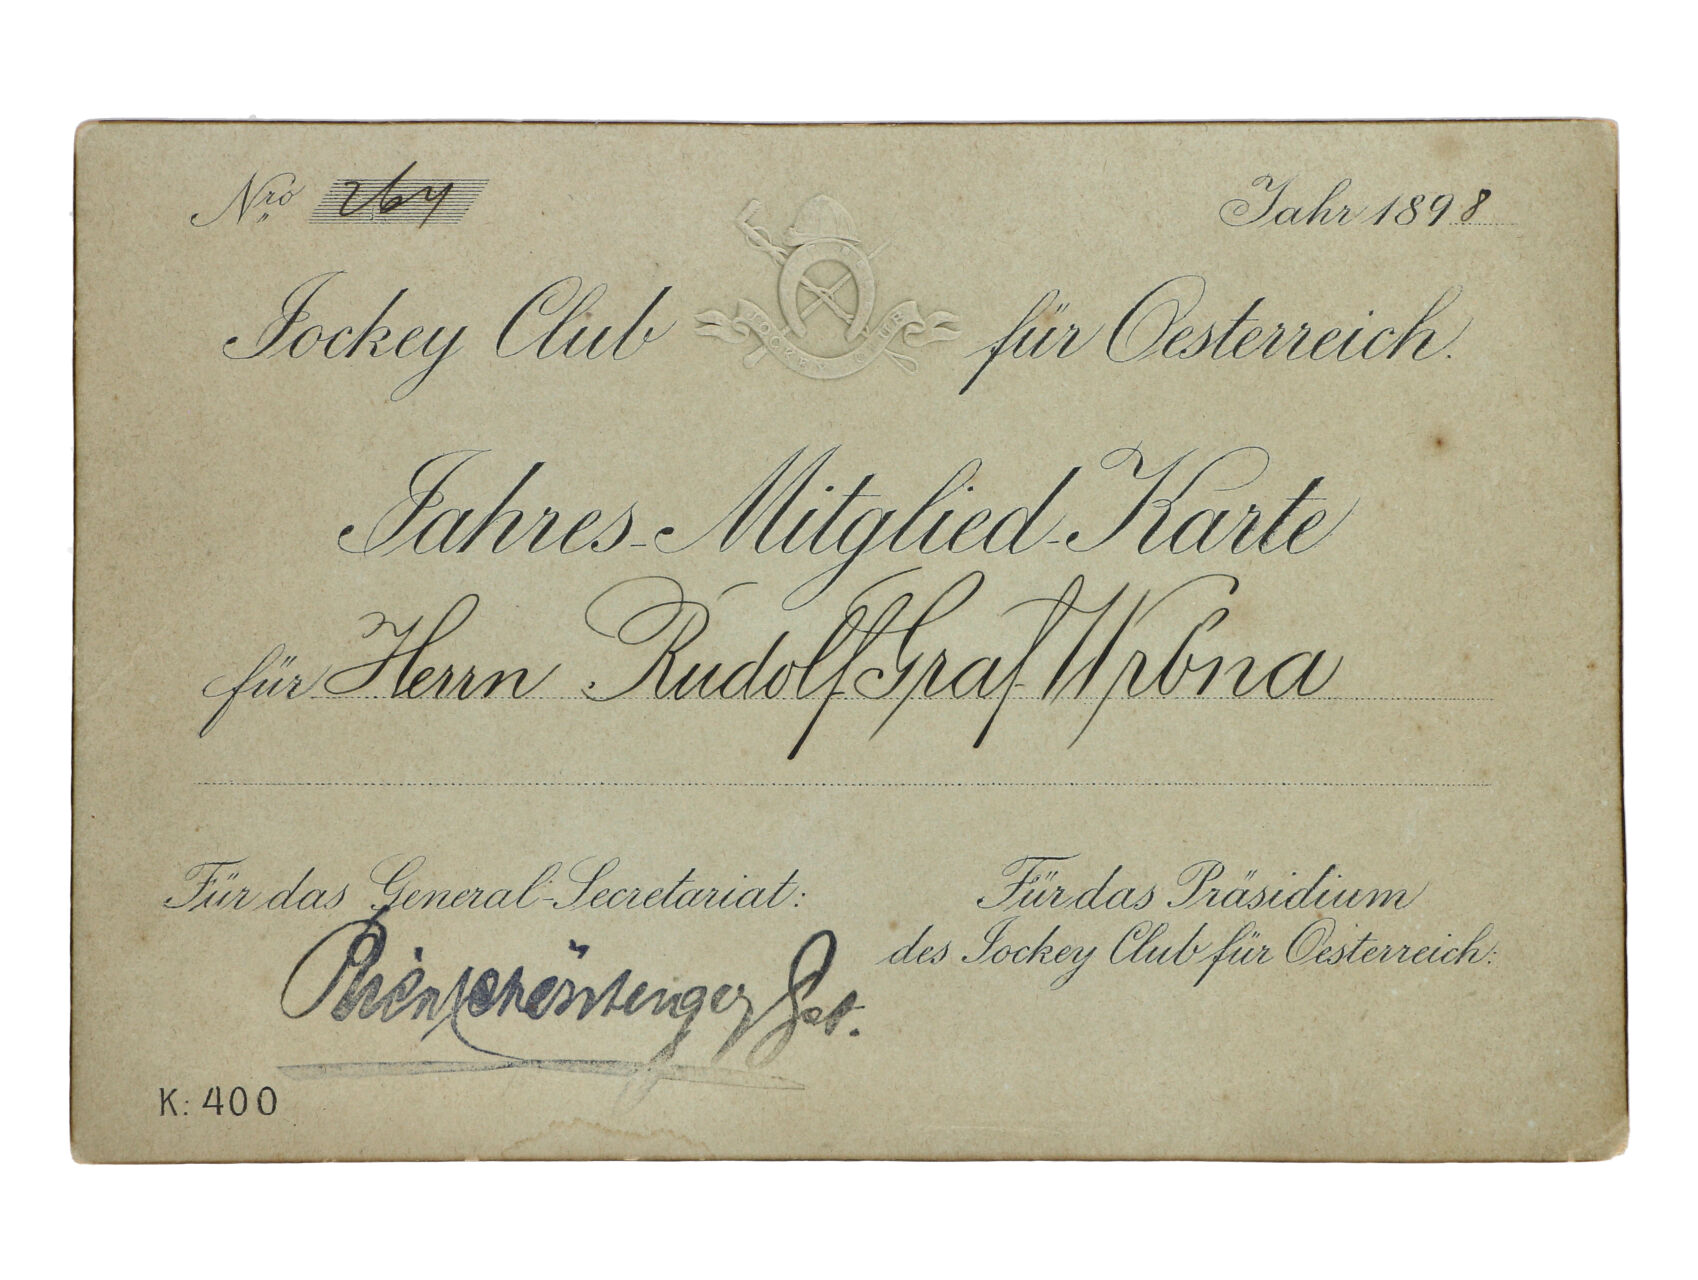 Nro 264
Jahr 1898
Jockey Club für Oesterreich.
JOCKEY CLUB
Jahres-Mitglied-Karte
für Herrn Rudolf Graf Wrbna
Für das General-Secretariat:
Für das Präsidium
des Jockey Club für Oesterreich:
K: 400